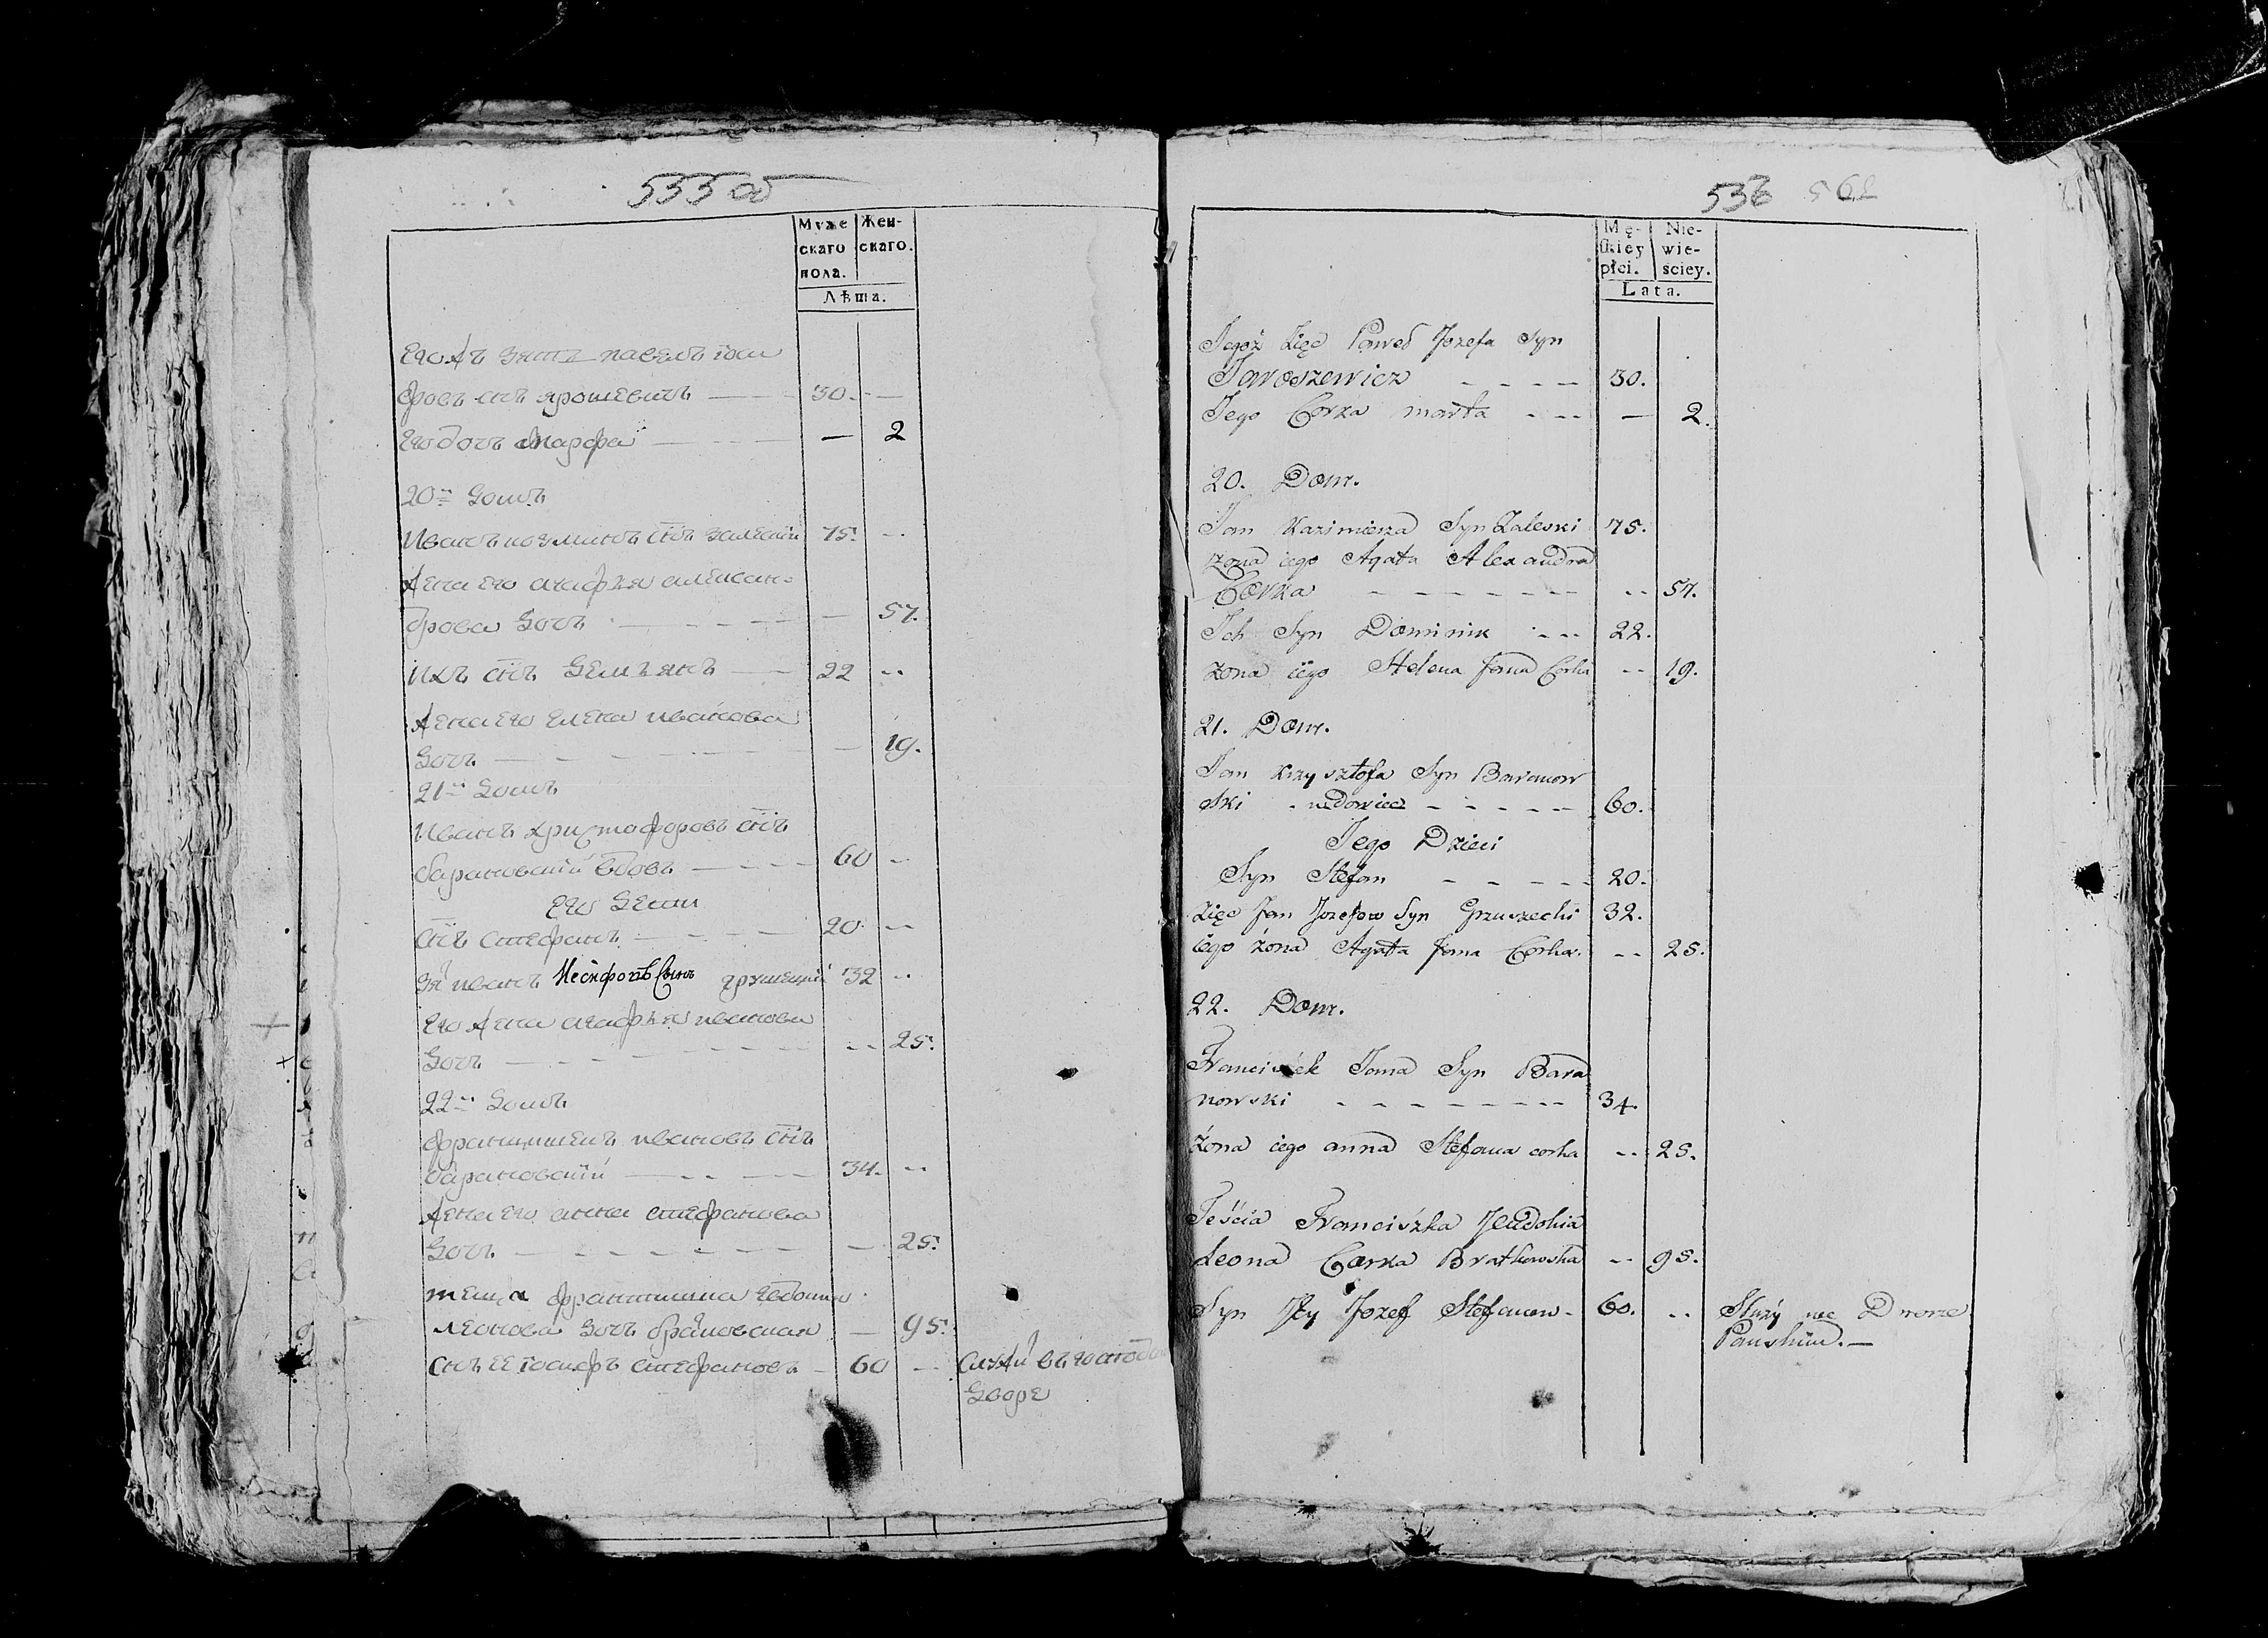 535 об
Муже
скаго
пола.
Жен-
скаго.
Лѣта.
Егожъ зять павелъ іоси
фовъ снъ ярошевичъ 30. —
Его дочь марфа — 2
20й домъ
Иванъ козминъ снъ залескій 75. --
Жена его агафия алексан-
дрова дочь — 57.
Ихъ снъ демьянъ 22 --
Жена его елена иванова
дочь — 19.
21й домъ
Иванъ христофоровъ снъ
барановскій вдовъ 60 --
Его дети
снъ стефанъ 20. --
зя иванъ Иосифовъ Сынъ грушецкій 32 --
Его жена агафия иванова
дочь -- 25.
22й домъ
францишекъ ивановъ снъ
барановскій 34. --
Жена его анна стефанова
дочь — 25.
теща францишка евдокия
леонова дочь — 95.
снъ ее іосифъ стефановъ 60 -- служи въ
дворе
536 562
Mę-
skiey
płci.
Nie-
wie-
sciey.
Lata.
Jegoż Zięc Paweł Jozefa Syn
Jaroszewicz - - - - 30.
Jego Corka marta - - - — 2.
20. Dom.
Jan Kazimierza Syn Zaleski 75.
żona iego Agata Alexandra
Corka - - - - - - - -- 57.
Ich Syn Dominik - - - 22.
żona iego Helena Jana Corka -- 19.
21. Dom.
Jan Krzysztofa Syn Baranow
ski - wdowiec - - - - - 60.
Jego Dzieci
Syn Stefan - - - - - 20.
Zięc Jan Jozefow Syn Gruszecki 32.
iego żona Agata Jana Corka. -- 25.
22. Dom.
Franciszek Jana Syn Bara
nowski - - - - - - - - 34.
żona iego anna Stefana corka -- 25.
Teścia Franciszka Jeudokia
Leona Corka Bratkowska -- 95.
Syn Jey Jozef Stefanow - 60. -- Służy we Dworze
Panskim. —